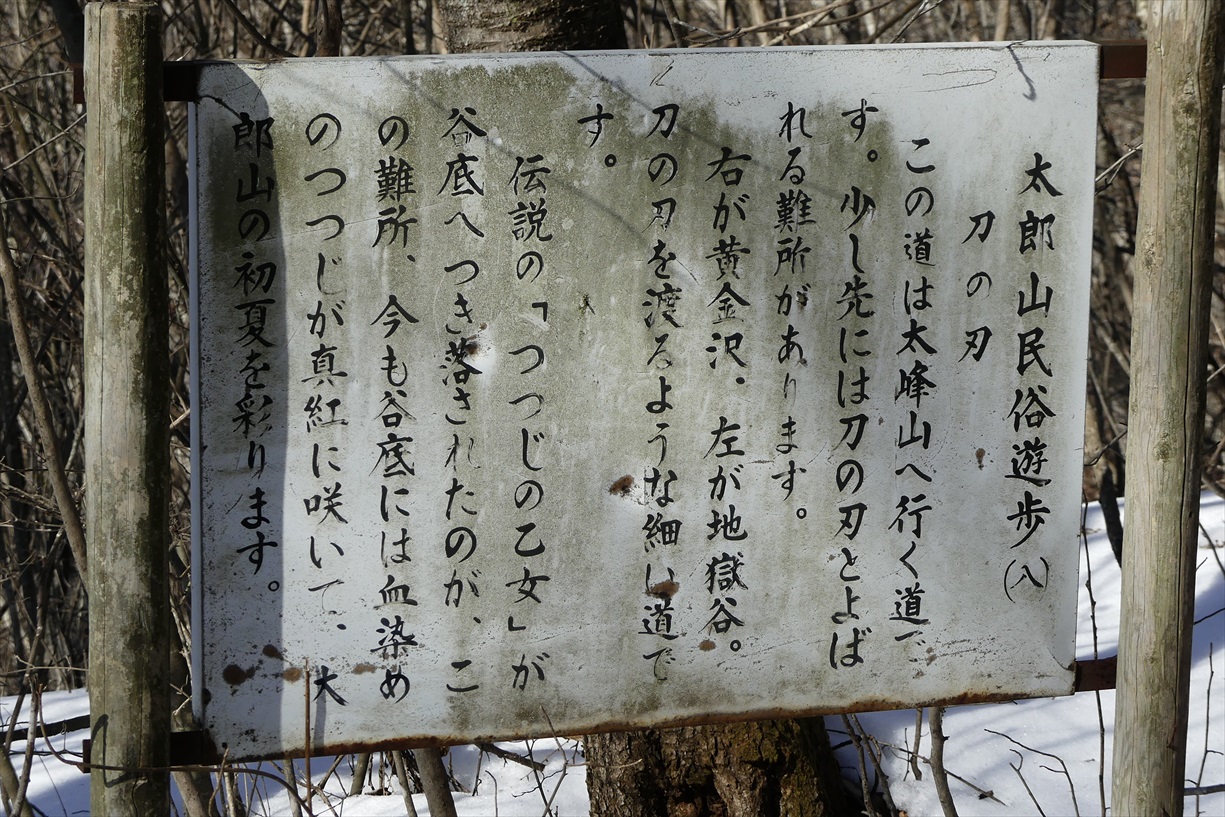 太郎山民俗遊歩(八)
刀の刃
この道は太峰山へ行く道で
す。少し先には刀の刃とよば
れる難所があります。
右が黄金沢、左が地獄谷。
刀の刃を渡るような細い道で
す。
伝説の「つつじの乙女」が
谷底へつき落されたのが、こ
の難所、今も谷底には血染め
のつつじが真紅に咲いて、太
郎山の初夏を彩ります。